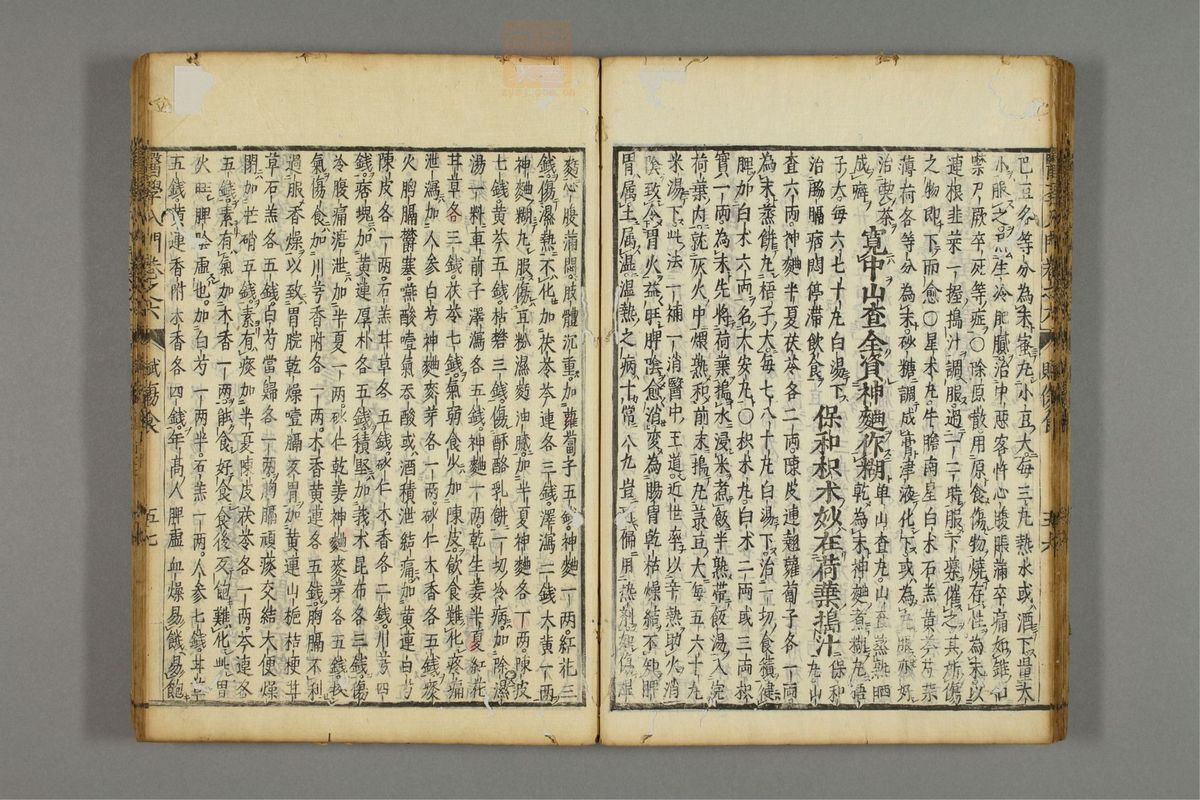 巴豆各等分為末蜜丸小豆大每三丸熱水或酒下量大
小服之生冷治中惡客忤心腹脹滿卒痛如錐
噤口厥卒死等症〇除原散用原食傷物燒存性為末以
連根韭菜一握搗汁調服過一二時服下藥催之其所傷
之物即下而愈〇星朮丸牛膽南星白朮石羔黃芩芍茶
薄荷各等分為末砂糖調成膏津液化下或為丸服
治輭茶成癖
寬中山查全資神麯作糊
單山查丸山查蒸熟晒
乾為末神麯煮糊丸梧
子大每六七十丸白湯下
治膈膈痞悶停滯飲食
保和枳朮妙在荷葉搗汁
保和丸山
查六兩神麯半夏茯苓各二兩陳皮連翹蘿蔔子各一兩
為末蒸餅丸梧子大每七八十丸白湯下治一切食積健
脾加白朮六兩名大安丸〇枳朮丸白朮二兩或三兩枳
實一兩為末先將荷葉搗水浸米煮飯半熟帶飯湯入定
荷葉內就灰火中煨熟和前末搗丸菉豆大每五六十丸
米湯下此法一補一消醫中王道近世率以辛熱助火消
陰致令胃火益旺脾陰愈消變為腸胃乾枯燥結不知脾
胃属土属濕溫熱之病十常八九豈可偏用熱劑
醫學入門 卷之六 賦傷食 五十七
麯心腹滿悶肢體沉重加蘿蔔子五錢神麯一兩紅花三
錢傷濕熱不化加茯苓芩連各三錢澤瀉二錢大黃一兩
神麯糊丸服傷豆粉濕麪油膩加半夏神麯各一兩陳皮
七錢黃芩五錢枯礬三錢傷酥酪乳餅一切冷病加除濕
湯一料車前子澤瀉各五錢神麯一兩乾生姜半夏紅花
甘草各三錢茯苓七錢氣弱食火加陳皮飲食難化疼痛
泄瀉加人參白芍神麯麥芽各一兩砂仁木香各五錢痰
火胸膈欝塞嚥酸噎氣吞酸或酒積泄結痛加黃連白芍
陳皮各一兩石羔甘草各五錢砂仁木香各二錢川芎四
錢痞塊加黃連厚朴各五錢積堅加莪朮昆布各三錢傷
冷腹痛溏泄加半夏一兩砂仁乾姜神麯麥芽各五錢
氣傷食加川芎香附各一兩木香黃連各五錢胸膈不利
過服香燥以致胃脘乾燥噎膈反胃加黃連山梔桔梗甘
草石羔各五錢白芍當歸各一兩胸膈頑痰交結大便燥
閉加芒硝五錢素有痰加半夏陳皮茯苓各一兩芩連各
五錢素有氣加木香一兩能食好食食後反飽難化此胃
火旺脾陰虛也加白芍一兩半石羔一兩人參七錢甘草
五錢黃連香附木香各四錢年高人脾虛血燥易餓易飽